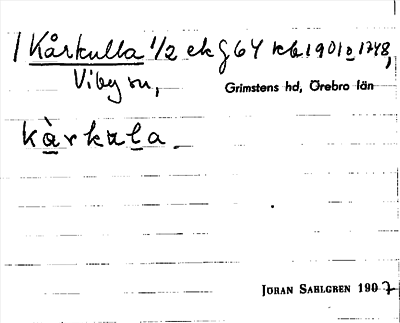 1 Kårkulla 1/2 ek G64 kb 1901 o 1748,
Viby sn,
Grimstens hd, Örebro län
kàrkula
JÖRAN SAHLGREN 1907